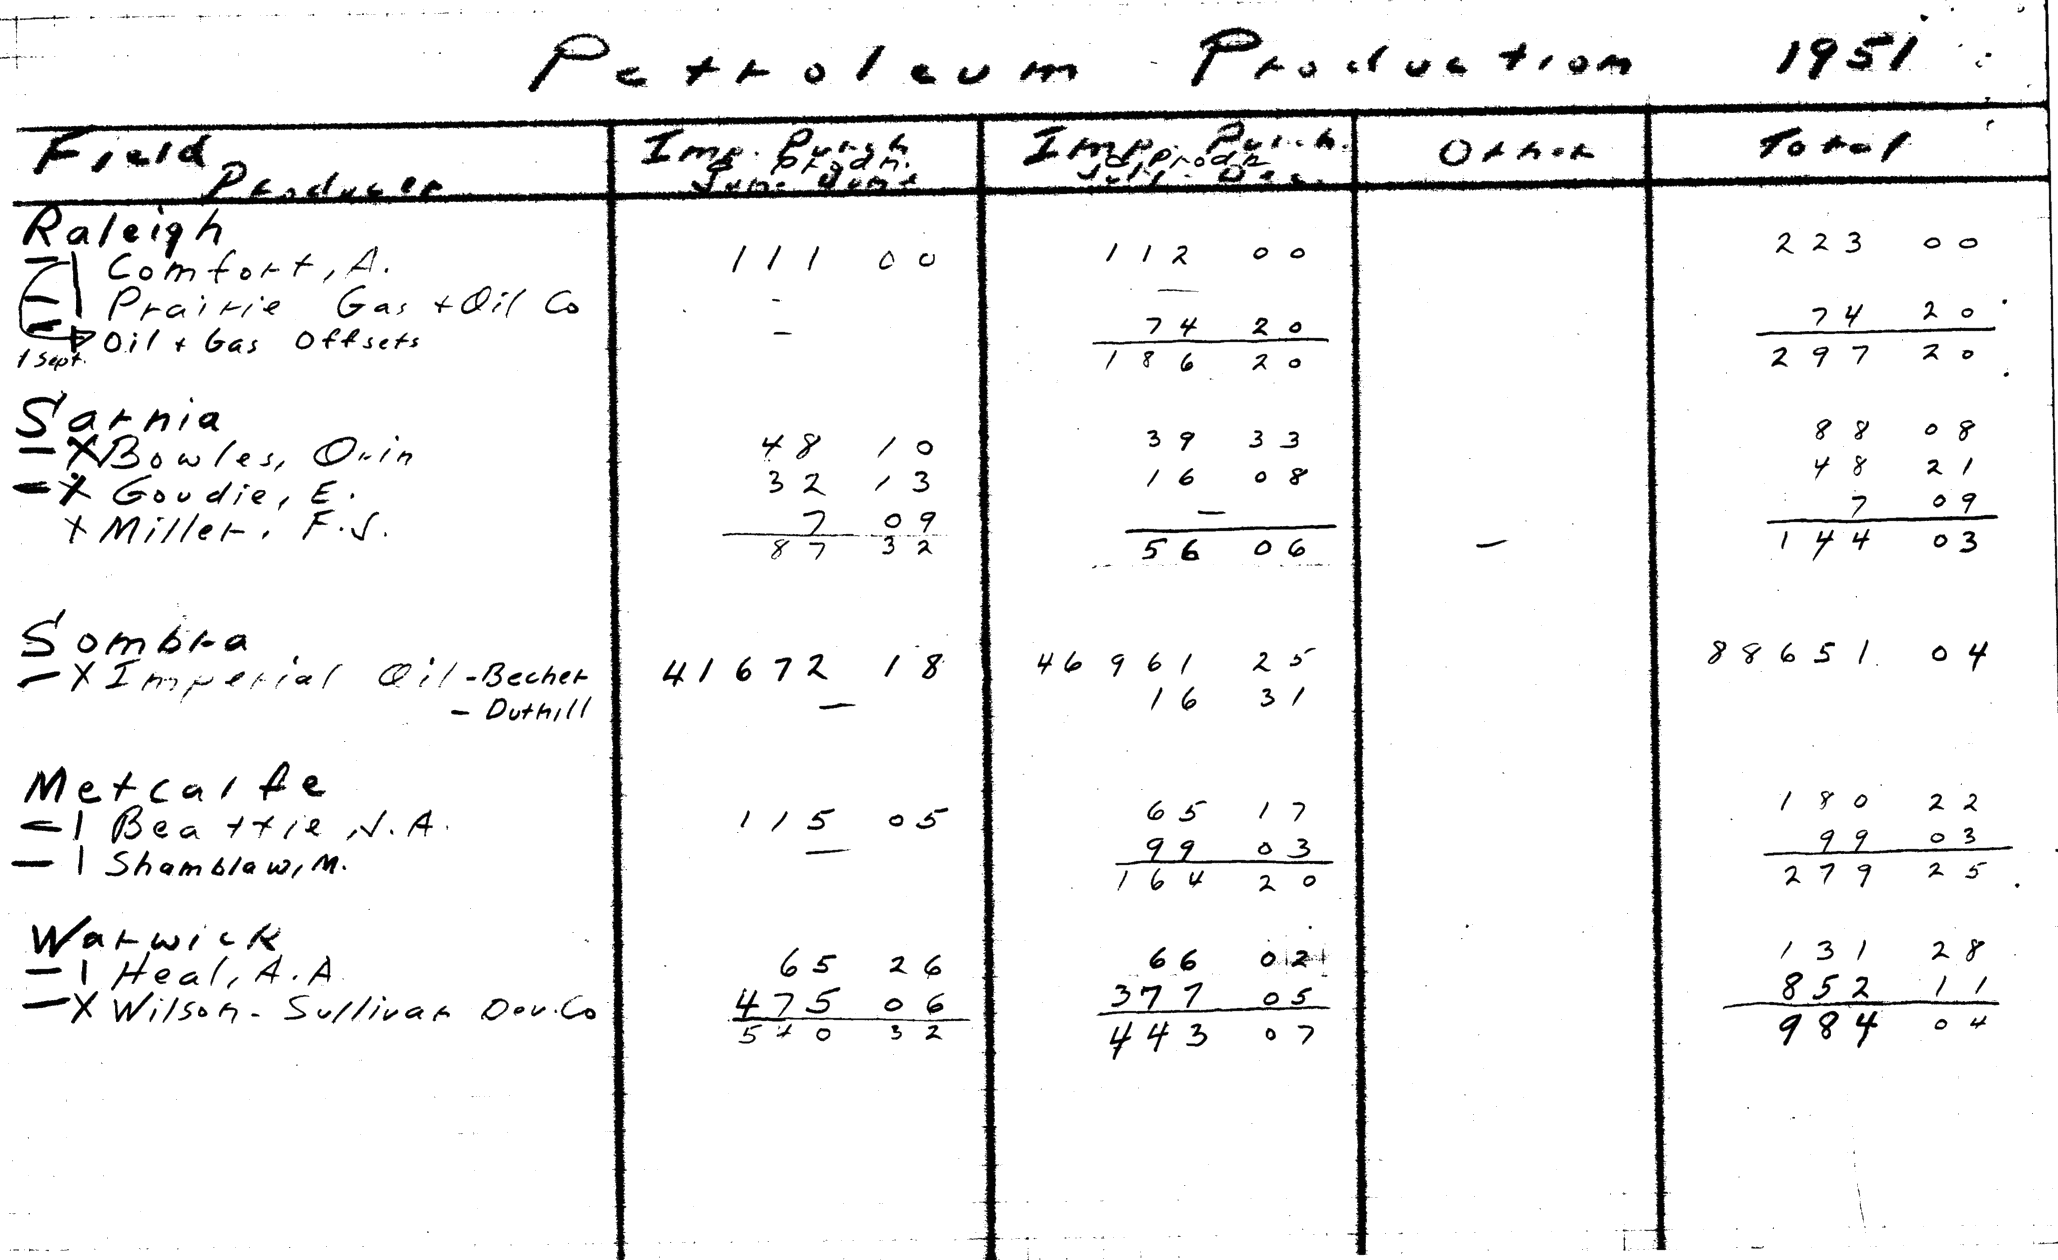 Petroleum Production 1951
Field Producer Imp. Purch & prodn. Jan. June Imp. Purch. & prodn July - Dec. Other Total
Raleigh
Comfort, A. 111 00 112 00 223 00
Prairie Gas + Oil Co - —
Oil + Gas Offsets — 74 20 74 20
1 Sept. 186 20 297 20
Sarnia
- X Bowles, Orin 48 10 39 33 88 08
- X Goudie, E. 32 13 16 08 48 21
X Miller, F.J. 7 09 — 7 09
87 32 56 06 — 144 03
Sombra
- X Imperial Oil - Becher 41672 18 46961 25 88651 04
- Duthill — 16 31
Metcalfe
- 1 Beattie, J.A. 115 05 65 17 180 22
- 1 Shamblaw, M. — 99 03 99 03
164 20 279 25
Warwick
- 1 Heal, A.A 65 26 66 02 131 28
- X Wilson - Sullivan Dev. Co 475 06 377 05 852 11
540 32 443 07 984 04